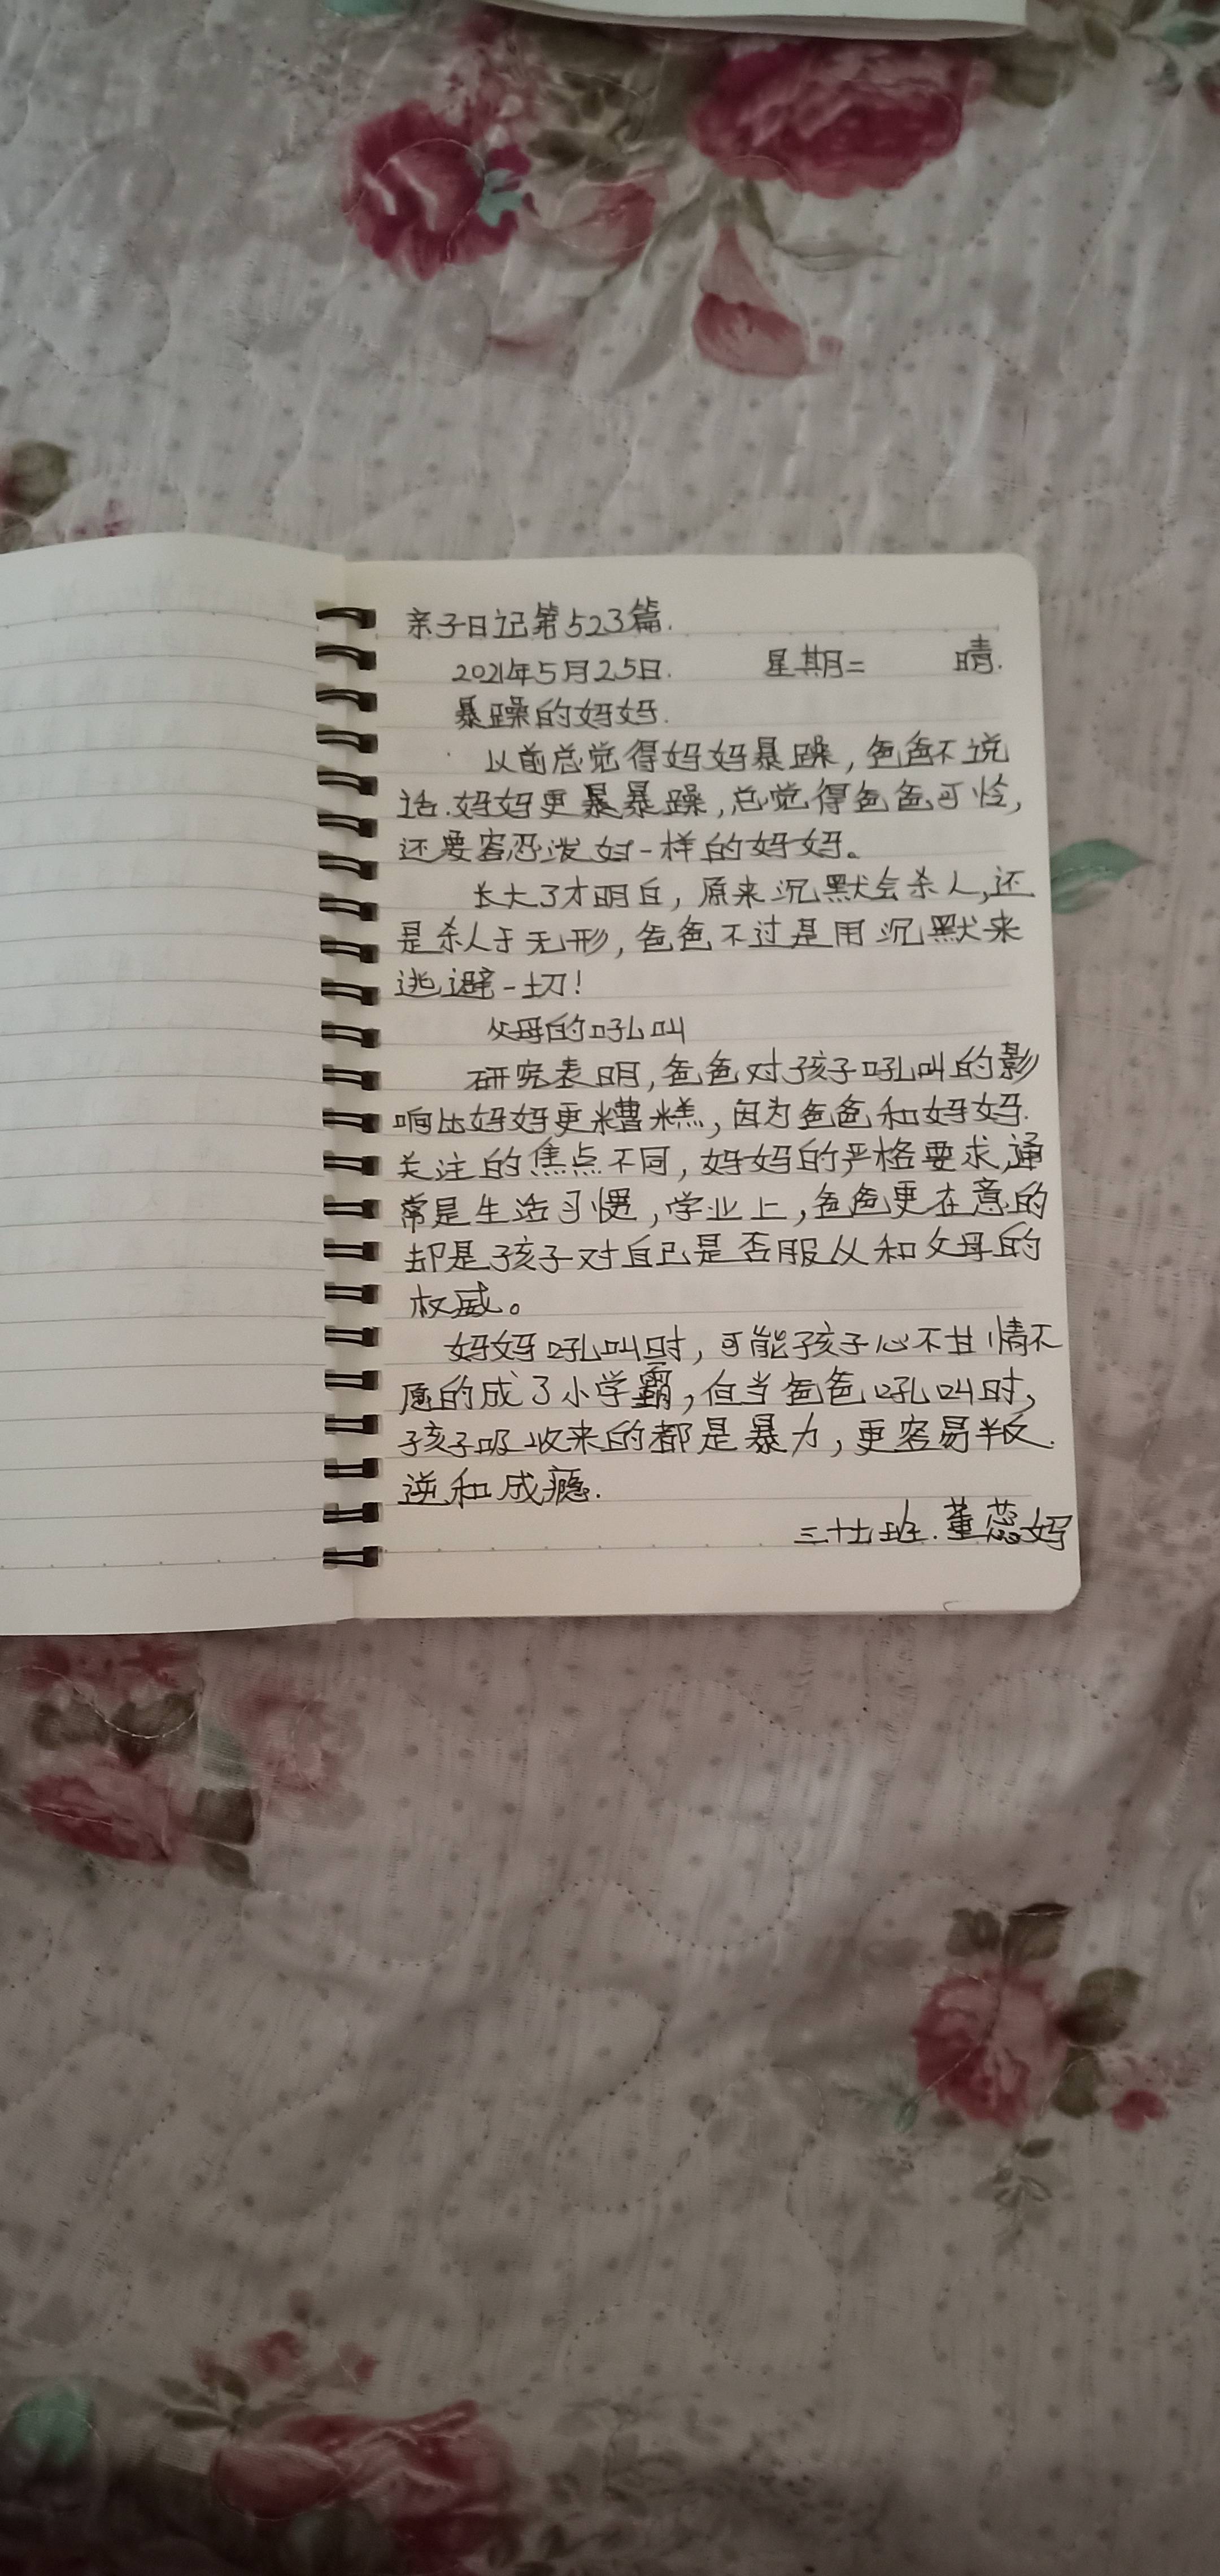 亲子日记第523篇.
2021年5月25日. 星期二 晴.
暴躁的妈妈.
以前总觉得妈妈暴躁,爸爸不说
话.妈妈更暴暴躁,总觉得爸爸可怜,
还要容忍泼妇一样的妈妈。
长大了才明白,原来沉默会杀人,还
是杀人于无形,爸爸不过是用沉默来
逃避一切!
父母的吼叫
研究表明,爸爸对孩子吼叫的影
响比妈妈更糟糕,因为爸爸和妈妈.
关注的焦点不同,妈妈的严格要求,通
常是生活习惯,学业上,爸爸更在意的
却是孩子对自己是否服从和父母的
权威。
妈妈吼叫时,可能孩子心不甘情不
愿的成了小学霸,但当爸爸吼叫时,
孩子吸收来的都是暴力,更容易叛
逆和成瘾.
三十七班.董蕊妈